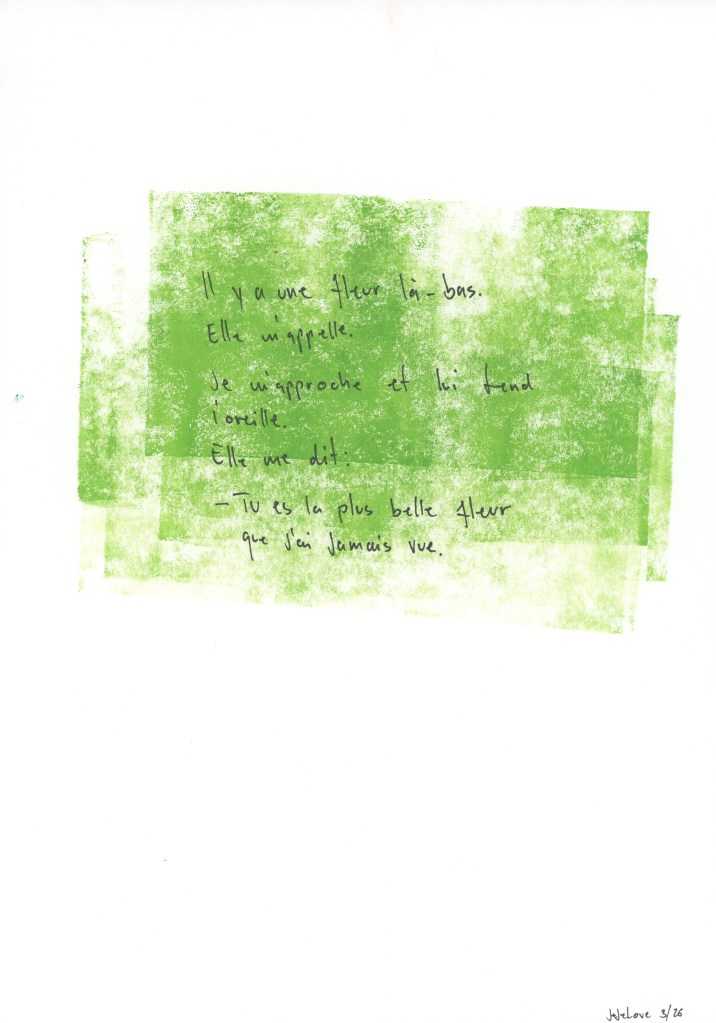 Il y a une fleur là-bas.
Elle m'appelle.
Je m'approche et lui tend
l'oreille.
Elle me dit:
- Tu es la plus belle fleur
que j'ai jamais vue.
JeJeLove 3/26